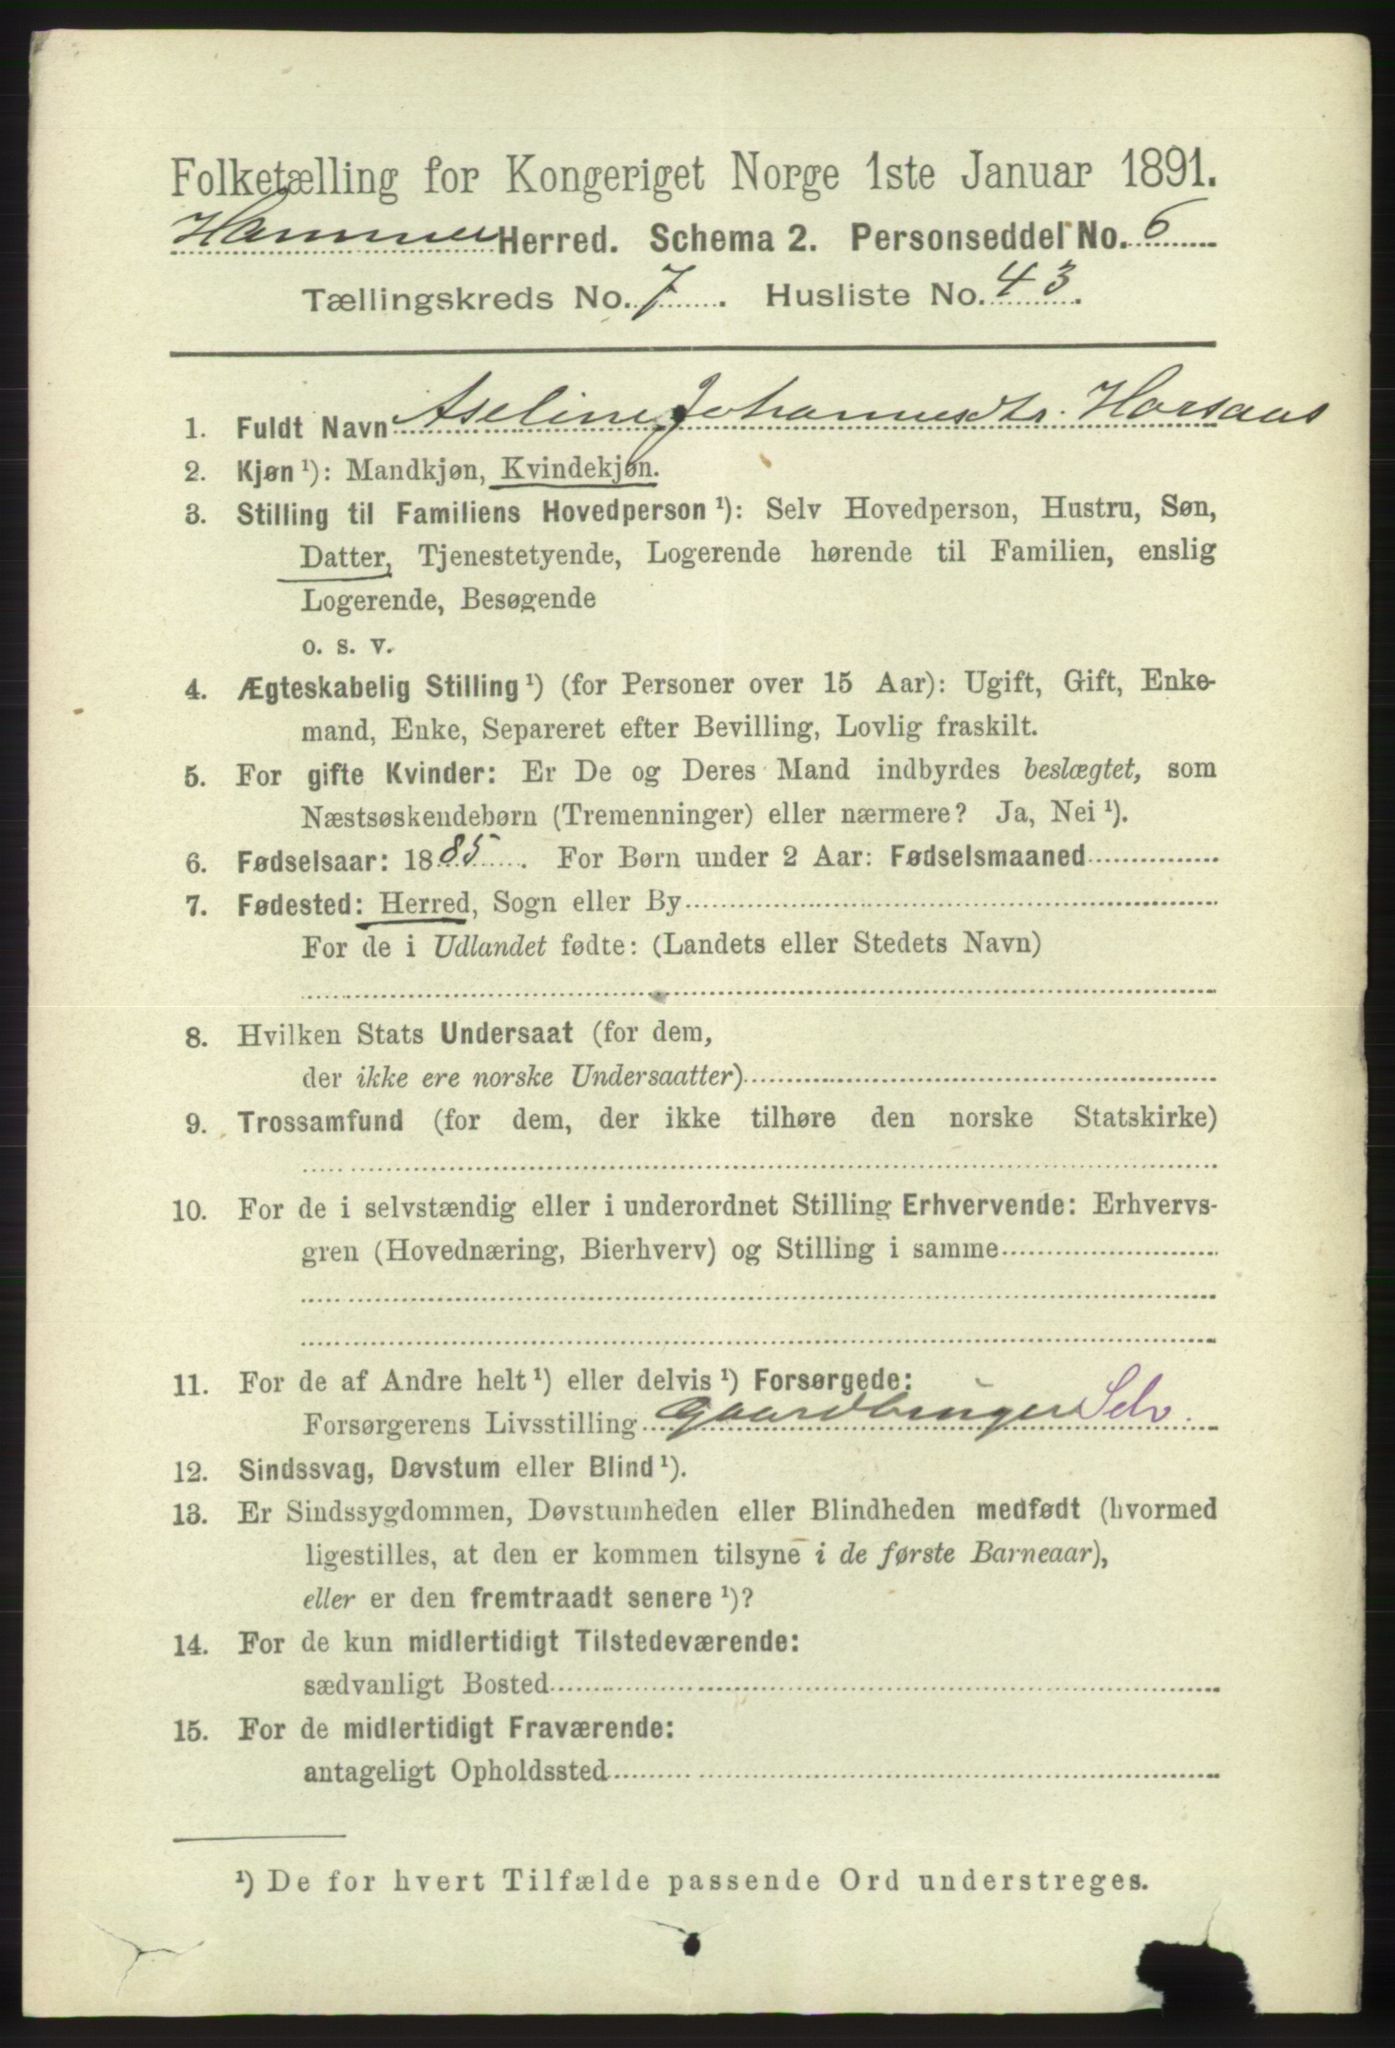 Folketælling for Kongeriget Norge 1ste Januar 1891.
Hammer Herred. Schema 2. Personseddel No. 6
Tællingskreds No. 7. Husliste No. 43.
1. Fuldt Navn Aseline Johannesdtr. Horsaas
2. Kjøn ¹): Mandkjøn, Kvindekjøn.
3. Stilling til Familiens Hovedperson ¹): Selv Hovedperson, Hustru, Søn,
Datter, Tjenestetyende, Logerende hørende til Familien, enslig
Logerende, Besøgende
o. s. v.
4. Ægteskabelig Stilling ¹) (for Personer over 15 Aar): Ugift, Gift, Enke-
mand, Enke, Separeret efter Bevilling, Lovlig fraskilt.
5. For gifte Kvinder: Er De og Deres Mand indbyrdes beslægtet, som
Næstsøskendebørn (Tremenninger) eller nærmere? Ja, Nei ¹).
6. Fødselsaar: 1885. For Børn under 2 Aar: Fødselsmaaned
7. Fødested: Herred, Sogn eller By
For de i Udlandet fødte: (Landets eller Stedets Navn)
8. Hvilken Stats Undersaat (for dem,
der ikke ere norske Undersaatter)
9. Trossamfund (for dem, der ikke tilhøre den norske Statskirke)
10. For de i selvstændig eller i underordnet Stilling Erhvervende: Erhvervs-
gren (Hovednæring, Bierhverv) og Stilling i samme
11. For de af Andre helt ¹) eller delvis ¹) Forsørgede:
Forsørgerens Livsstilling Gaardbruger Selv.
12. Sindssvag, Døvstum eller Blind ¹).
13. Er Sindssygdommen, Døvstumheden eller Blindheden medfødt (hvormed
ligestilles, at den er kommen tilsyne i de første Barneaar),
eller er den fremtraadt senere ¹)?
14. For de kun midlertidigt Tilstedeværende:
sædvanligt Bosted
15. For de midlertidigt Fraværende:
antageligt Opholdssted
¹) De for hvert Tilfælde passende Ord understreges.